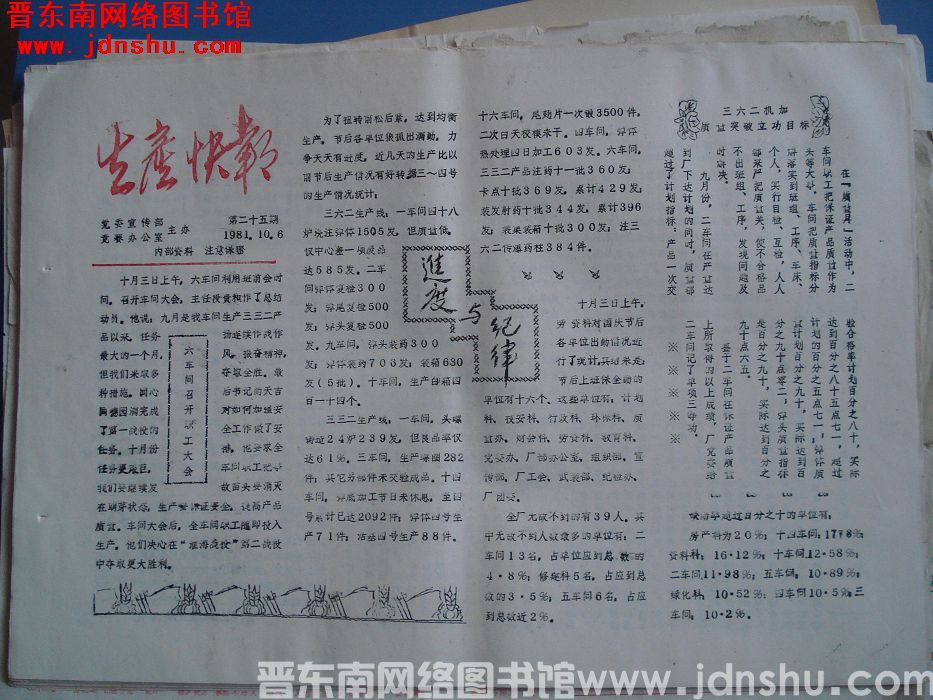 晋东南网络图书馆
www.jdnshu.com
生产快報
党委宣传部
党委办公室
主办
第二十五期
1981.10.6
内部资料 注意保密
十月三日上午,六车间利用班前会时
间,召开车间大会,主任段贵和作了总结
动员。他说:九月是我车间生产三三二产
品以来,任务
最大的一个月,
但我们采取多
种措施,同心
了第一战役的
任务。十月份
任务更艰巨,
我们要继续发
六车间召开职工大会
扬连续作战作
风,振奋精神,
夺取全胜。最
后书记韵天吉
对如何加强安
全工作做了安
排,他要求全
车间职工把事
故苗头要消灭
在萌芽状态,生产要保证安全,提高产品
质量。车间大会后,全车间职工随即投入
生产,他们决心在“淮海战役”第二战役
中夺取更大胜利。
为了扭转前松后紧,达到均衡
生产,节后各单位狠抓出满勤,力
争天天有进度,近几天的生产比以
前节后生产情况有好转,据三~四号
的生产情况统计:
三六二生产线:一车间四十八
炉浇注弹体1505发,但质量低,
仅中心差一项废品
达585发。二车
间弹体复验300
发;弹尾复验500
发;弹头复验500
发。九车间,弹头装药300
发;弹体装药703发;装箱630
发(5批)。十车间,生产白箱四
百一十四个。
三三二生产线:一车间,头螺
铸造24炉239发,但良品率仅
达61%。三车间,生产螺圈282
件;其它另部件未交验成品。十四
车间,弹底加工节日未休息,至四
号累计已达2092件;弹体四号生
产71件;活塞四号生产88件。
進度与纪律
十六车间,尾翅片一次镀3500件,
二次白天役模未干。四车间,弹体
热处理四日加工603发。六车间,
三三二产品注药十一批360发;
卡点十批369发,累计429发;
装发射药十批344发,累计396
发;装某装箱十批300发;注三
六二传爆药柱384件。
十月三日上午,
劳资科对国庆节后
各单位出勤情况进
行了统计,其结果是
节后上班休全勤的
单位有十六个,这些单位有:计划
科、技安科、行政科、环保科、质
监办、财会科、劳资科、教育科、
党委办、厂部办公室、组织部、宣
传部、厂工会、武装部、纪检办、
厂团委。
全厂无故不到的有39人。其
中无故不到人数最多的单位有:二
车间13名,占单位应到总数的
4·8%;修建科5名,占应到总
数的3·5%;五车间6名,占应
到总数近2%。
三六二机加
质量突破立功目标
在“质量月”活动中,二
车间职工把保证产品质量作为
头等大事。车间把质量指标分
解落实到班组、工序、车床、
个人,实行自检、互检,人人
都来严把质量关,使不合格品
不出班组、工序,发现问题及
时解决。
九月份,二车间在产量达
到厂下达计划的同时,质量都
超过了计划指标,产品一次交
验合格率计划百分之八十,实际
达到百分之八十五点七一,超过
计划的百分之五点七一;弹体质
量计划百分之九十,实际达到百
分之九十点零二,弹头质量指标
是百分之九十,实际达到百分之
九十点六五。
鉴于二车间在保证产品质量
上所取得的以上成绩,厂党委给
二车间记了单项三等功。
※ ※ ※ ※ ※
缺勤率超过百分之十的单位有:
房产科为20%;十四车间:17·8%
资料科:16·12%;十车间12·58%;
二车间11·98%;五车间:10·89%;
绿化科:10·52%;四车间10·5%;三
车间:10·2%。
晋东南网络图书馆www.jdnshu.com